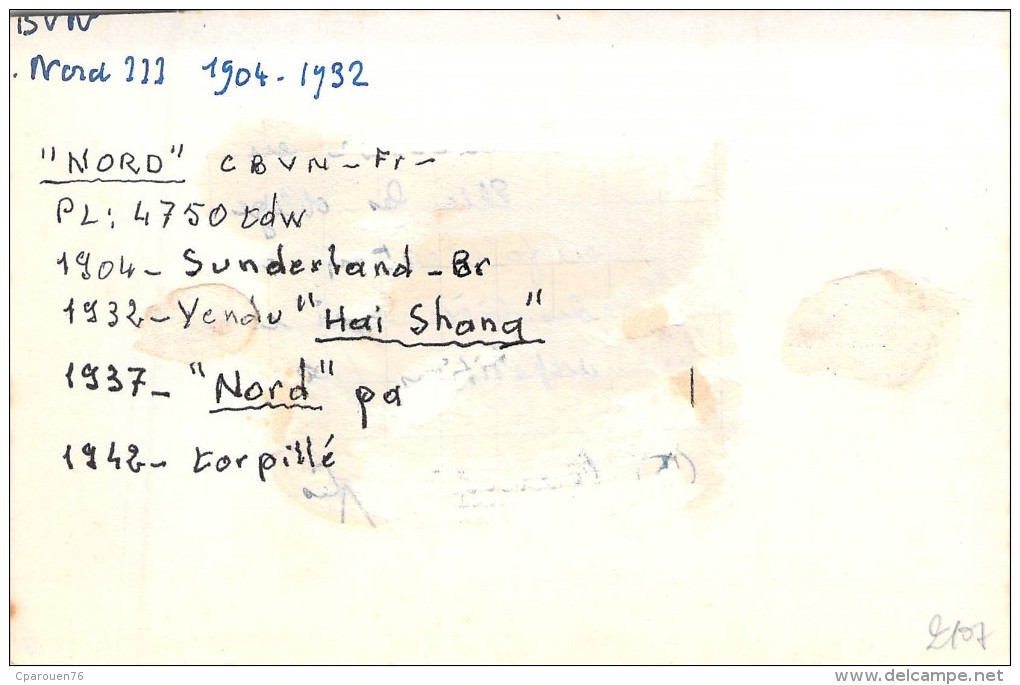 BVN
. Nord III 1904-1932
"NORD" CBVN-Fr-
PL: 4750 tdw
1904- Sunderland-Br
1932- Vendu "Hai Shang"
1937- "Nord" pa
1942- torpillé
Cparouen76
www.delcampe.net